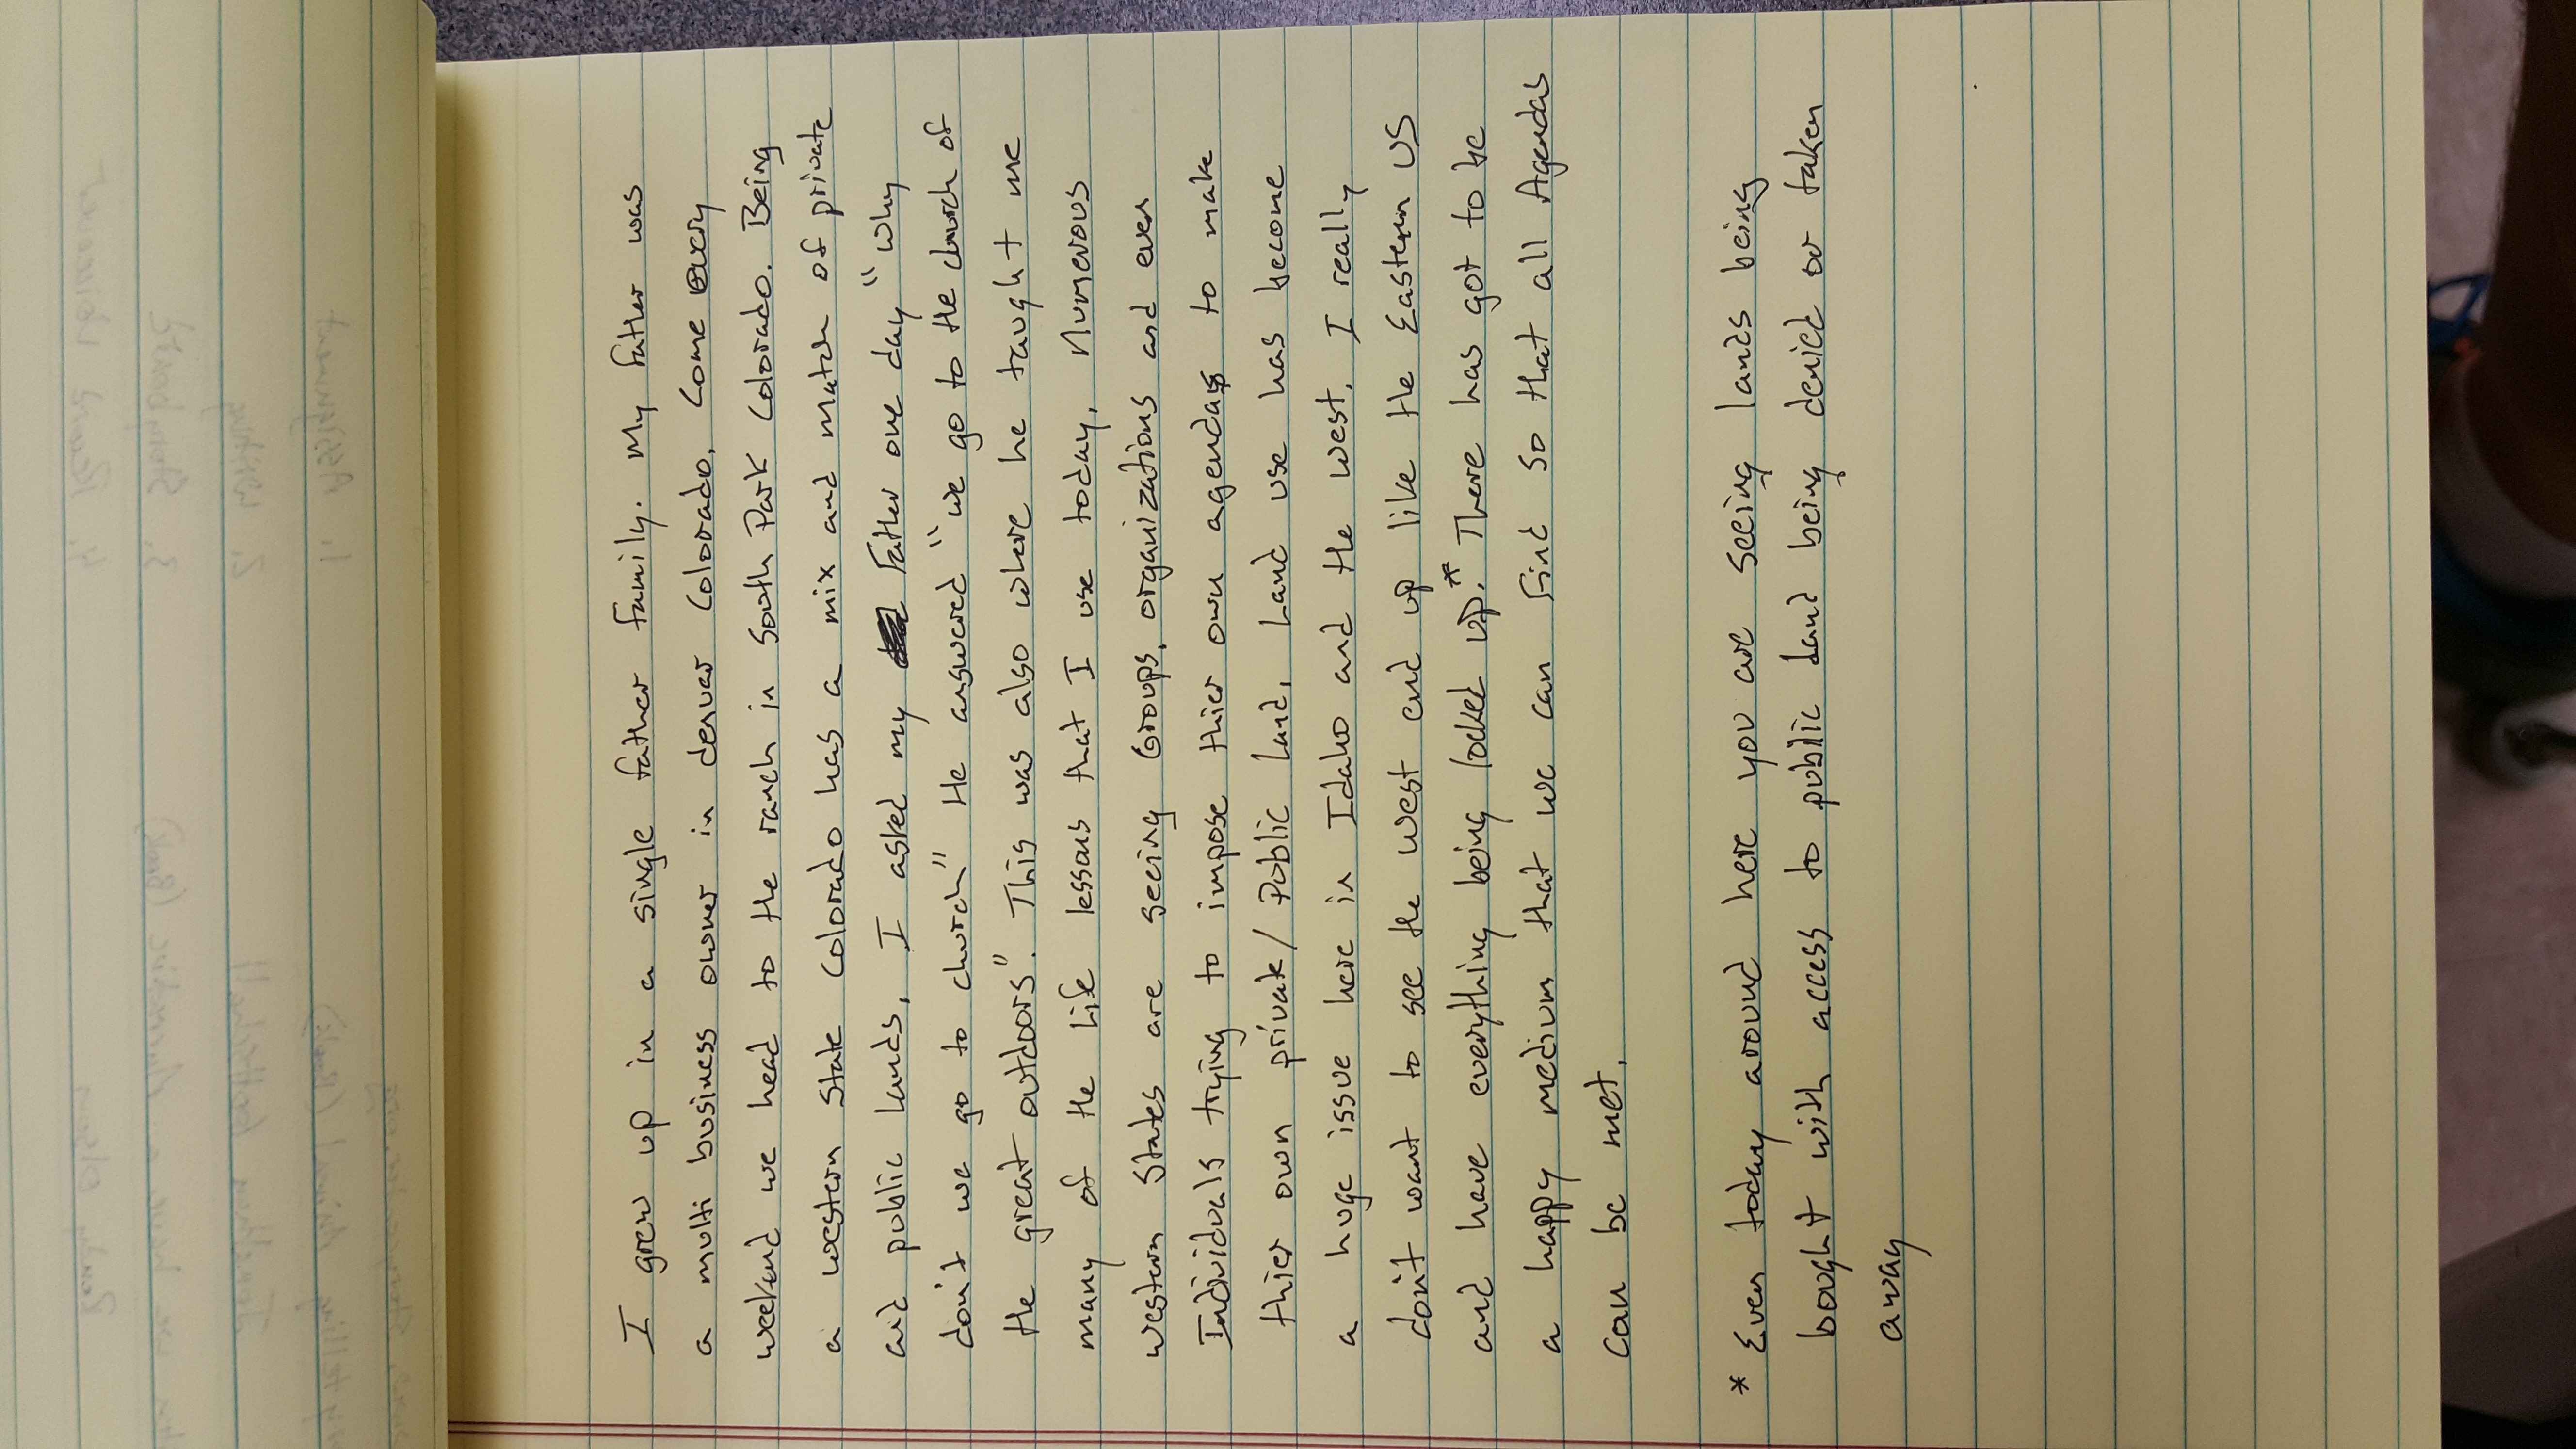 I grew up in a single father family. My father was
a multi business owner in denver Colorado. Come every
weekend we head to the ranch in South Park Colorado. Being
a western State Colorado has a mix and match of private
and public lands, I asked my Father one day "why
don't we go to church" He answered "we go to the church of
the great outdoors". This was also where he taught me
many of the life lessons that I use today. Numerous
western States are seeing Groups, organizations and even
Individuals trying to impose thier own agendas to make
thier own private/Public land. Land use has become
a huge issue here in Idaho and the west. I really
don't want to see the west end up like the Eastern US
and have everything being locked up.* There has got to be
a happy medium that we can find so that all Agendas
can be met.
* Even today around here you are seeing lands being
bought with access to public land being denied or taken
away
4.
3. Storyboard
2. Writing
1. Assignment